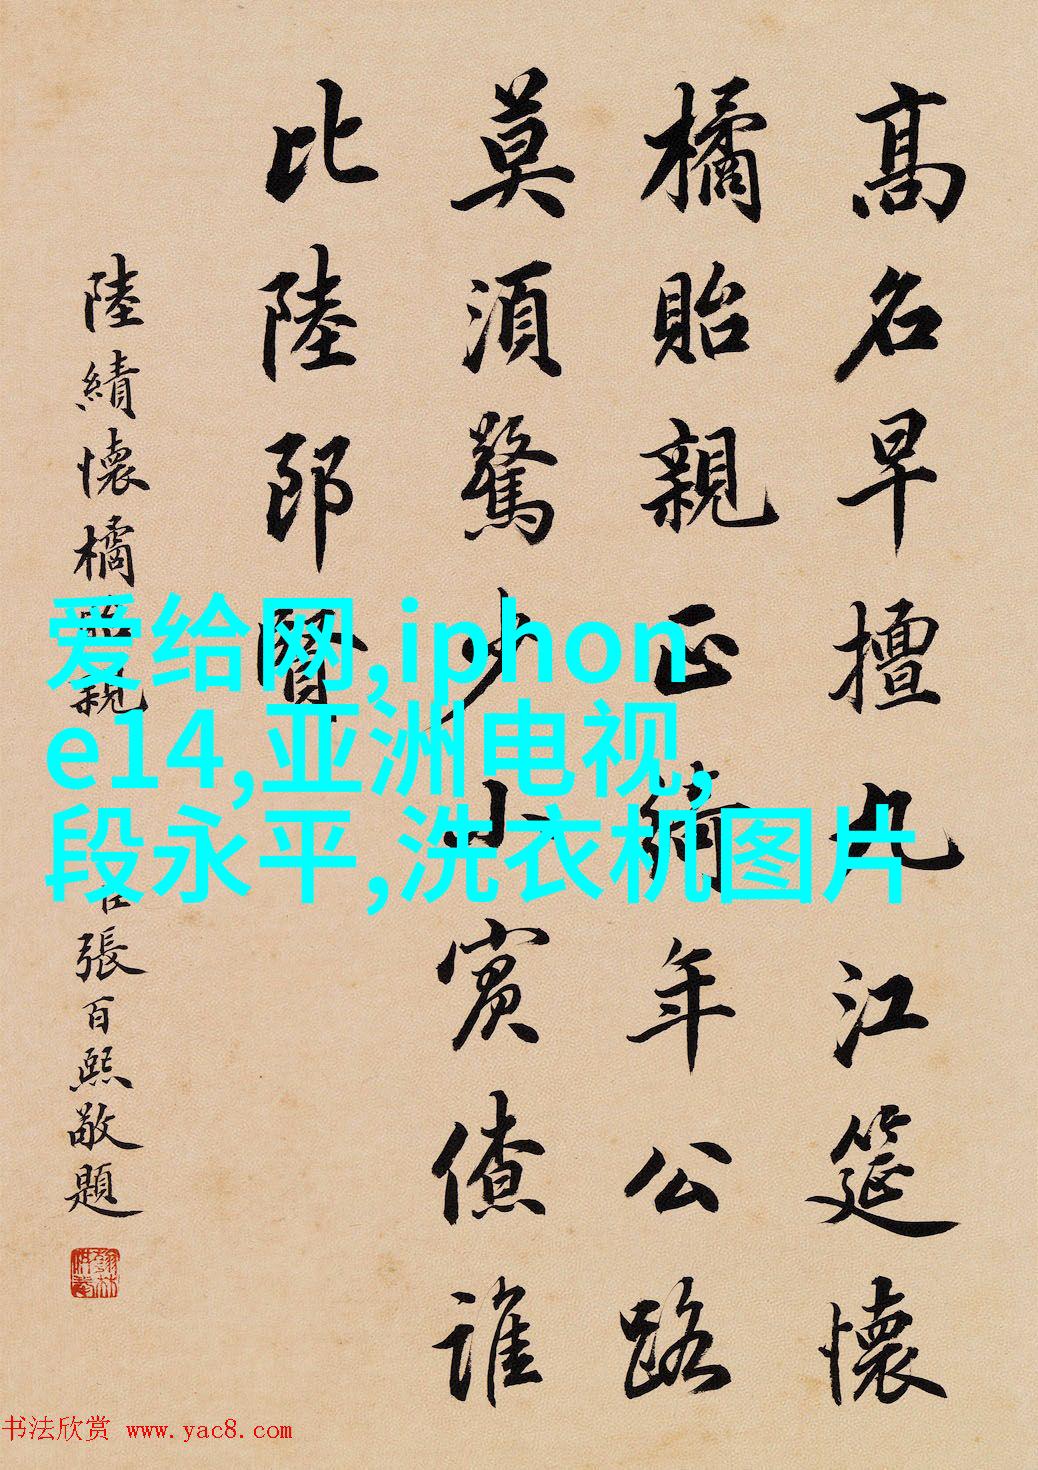 高名早擅九江筵懷
橘貽親正綺年公路
莫須驚少小賓僚誰
比陸郎賢
陸績懷橘貽親
臣張百熙敬題
爱给网,iphon
e14,亚洲电视,
段永平,洗衣机图片
书法欣赏 www.yac8.com